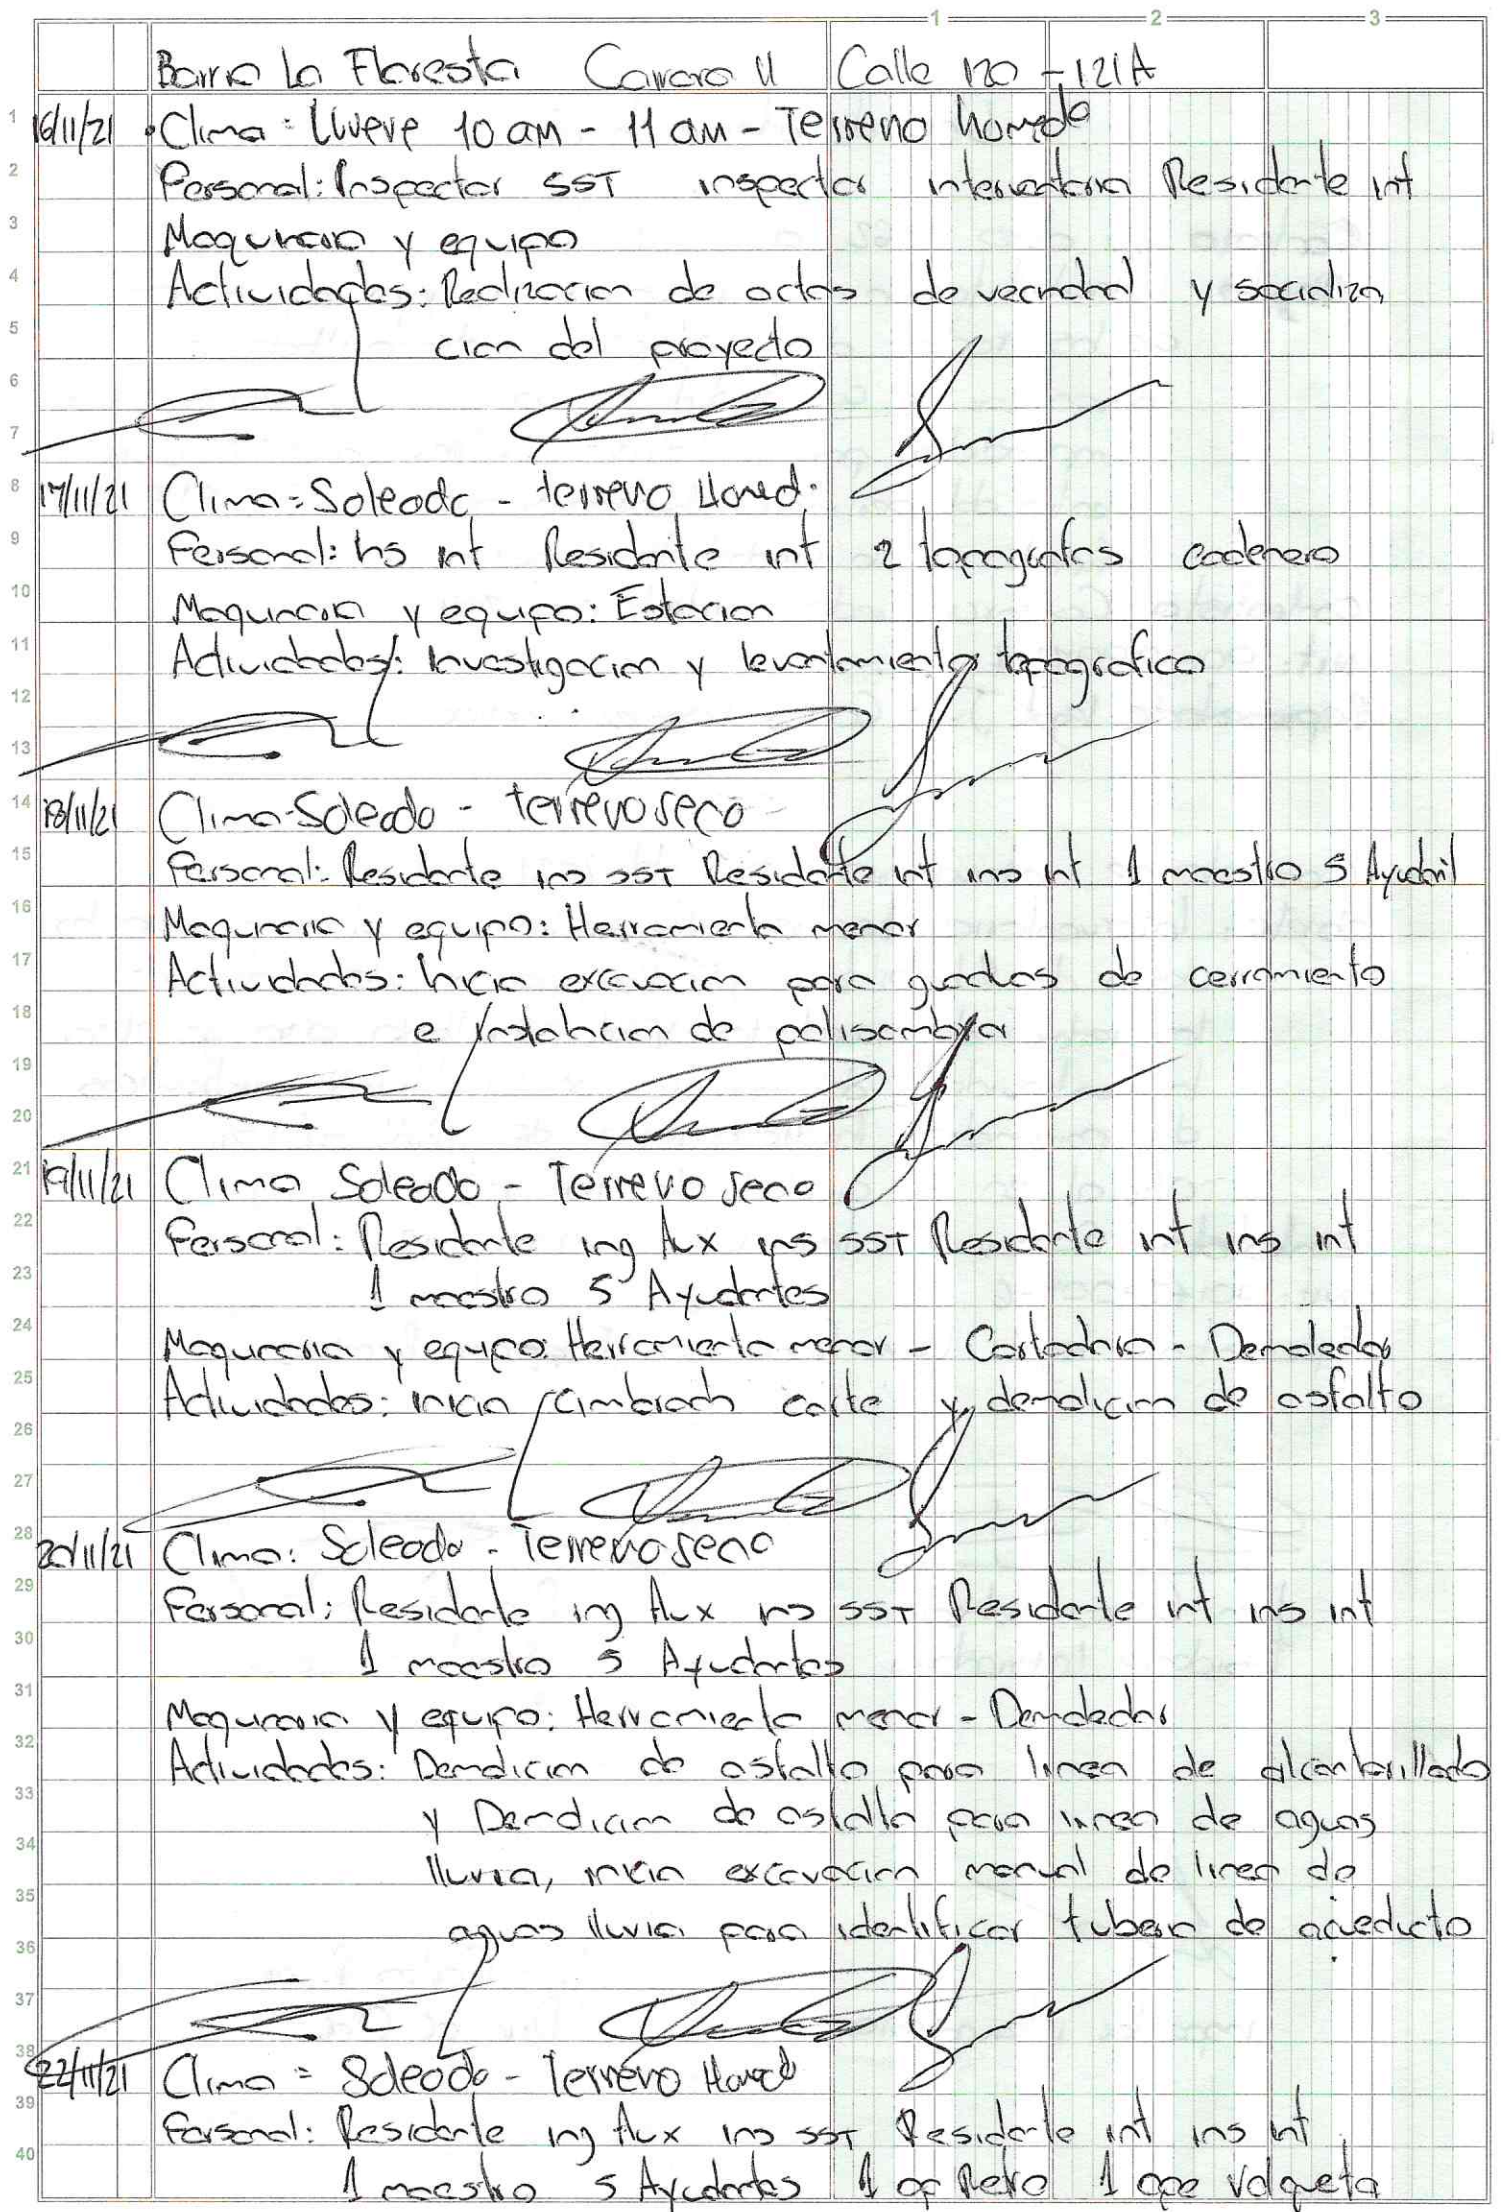 1 2 3
Barrio La Floresta Carrera 11 Calle 120 - 121A
1 16/11/21 • Clima: Llueve 10 am - 11 am - Terreno homedo
2 Personal: Inspector SST inspector interventoria Residente int
3 Maquinaria y equipo
4 Actividades: Realizacion de actas de vecindad y socializa
5 cion del proyecto
6
7
8 17/11/21 Clima: Soleado - terreno Homed.
9 Personal: Ins int Residente int 2 topografos cadenero
10 Maquinaria y equipo: Estacion
11 Actividades: Investigacion y levantamiento topografico
12
13
14 18/11/21 Clima-Soleado - terreno seco
15 Personal: Residente ins SST Residente int ins int 1 maestro 5 Ayudant
16 Maquinaria y equipo: Herramienta menor
17 Actividades: Inicia excavacion para guaduas de cerramiento
18 e Instalacion de polisombra
19
20
21 19/11/21 Clima Soleado - Terreno seco
22 Personal: Residente ing Aux ins SST Residente int ins int
23 1 maestro 5 Ayudantes
24 Maquinaria y equipo: Herramienta menor - Cortadora - Demoledor
25 Actividades: inicia corte y demolicion de asfalto
26
27
28 20/11/21 Clima: Soleado - Terreno seco
29 Personal: Residente ing Aux ins SST Residente int ins int
30 1 maestro 5 Ayudantes
31 Maquinaria y equipo: Herramienta menor - Demoledor
32 Actividades: Demolicion de asfalto para linea de alcantarillado
33 y Demolicion de asfalto para linea de aguas
34 lluvia, inicia excavacion manual de linea de
35 aguas lluvia para identificar tuberia de acueducto
36
37
38 22/11/21 Clima = Soleado - Terreno Homed
39 Personal: Residente ing Aux ins SST Residente int ins int
40 1 maestro 5 Ayudantes 1 op Retro 1 ope volqueta